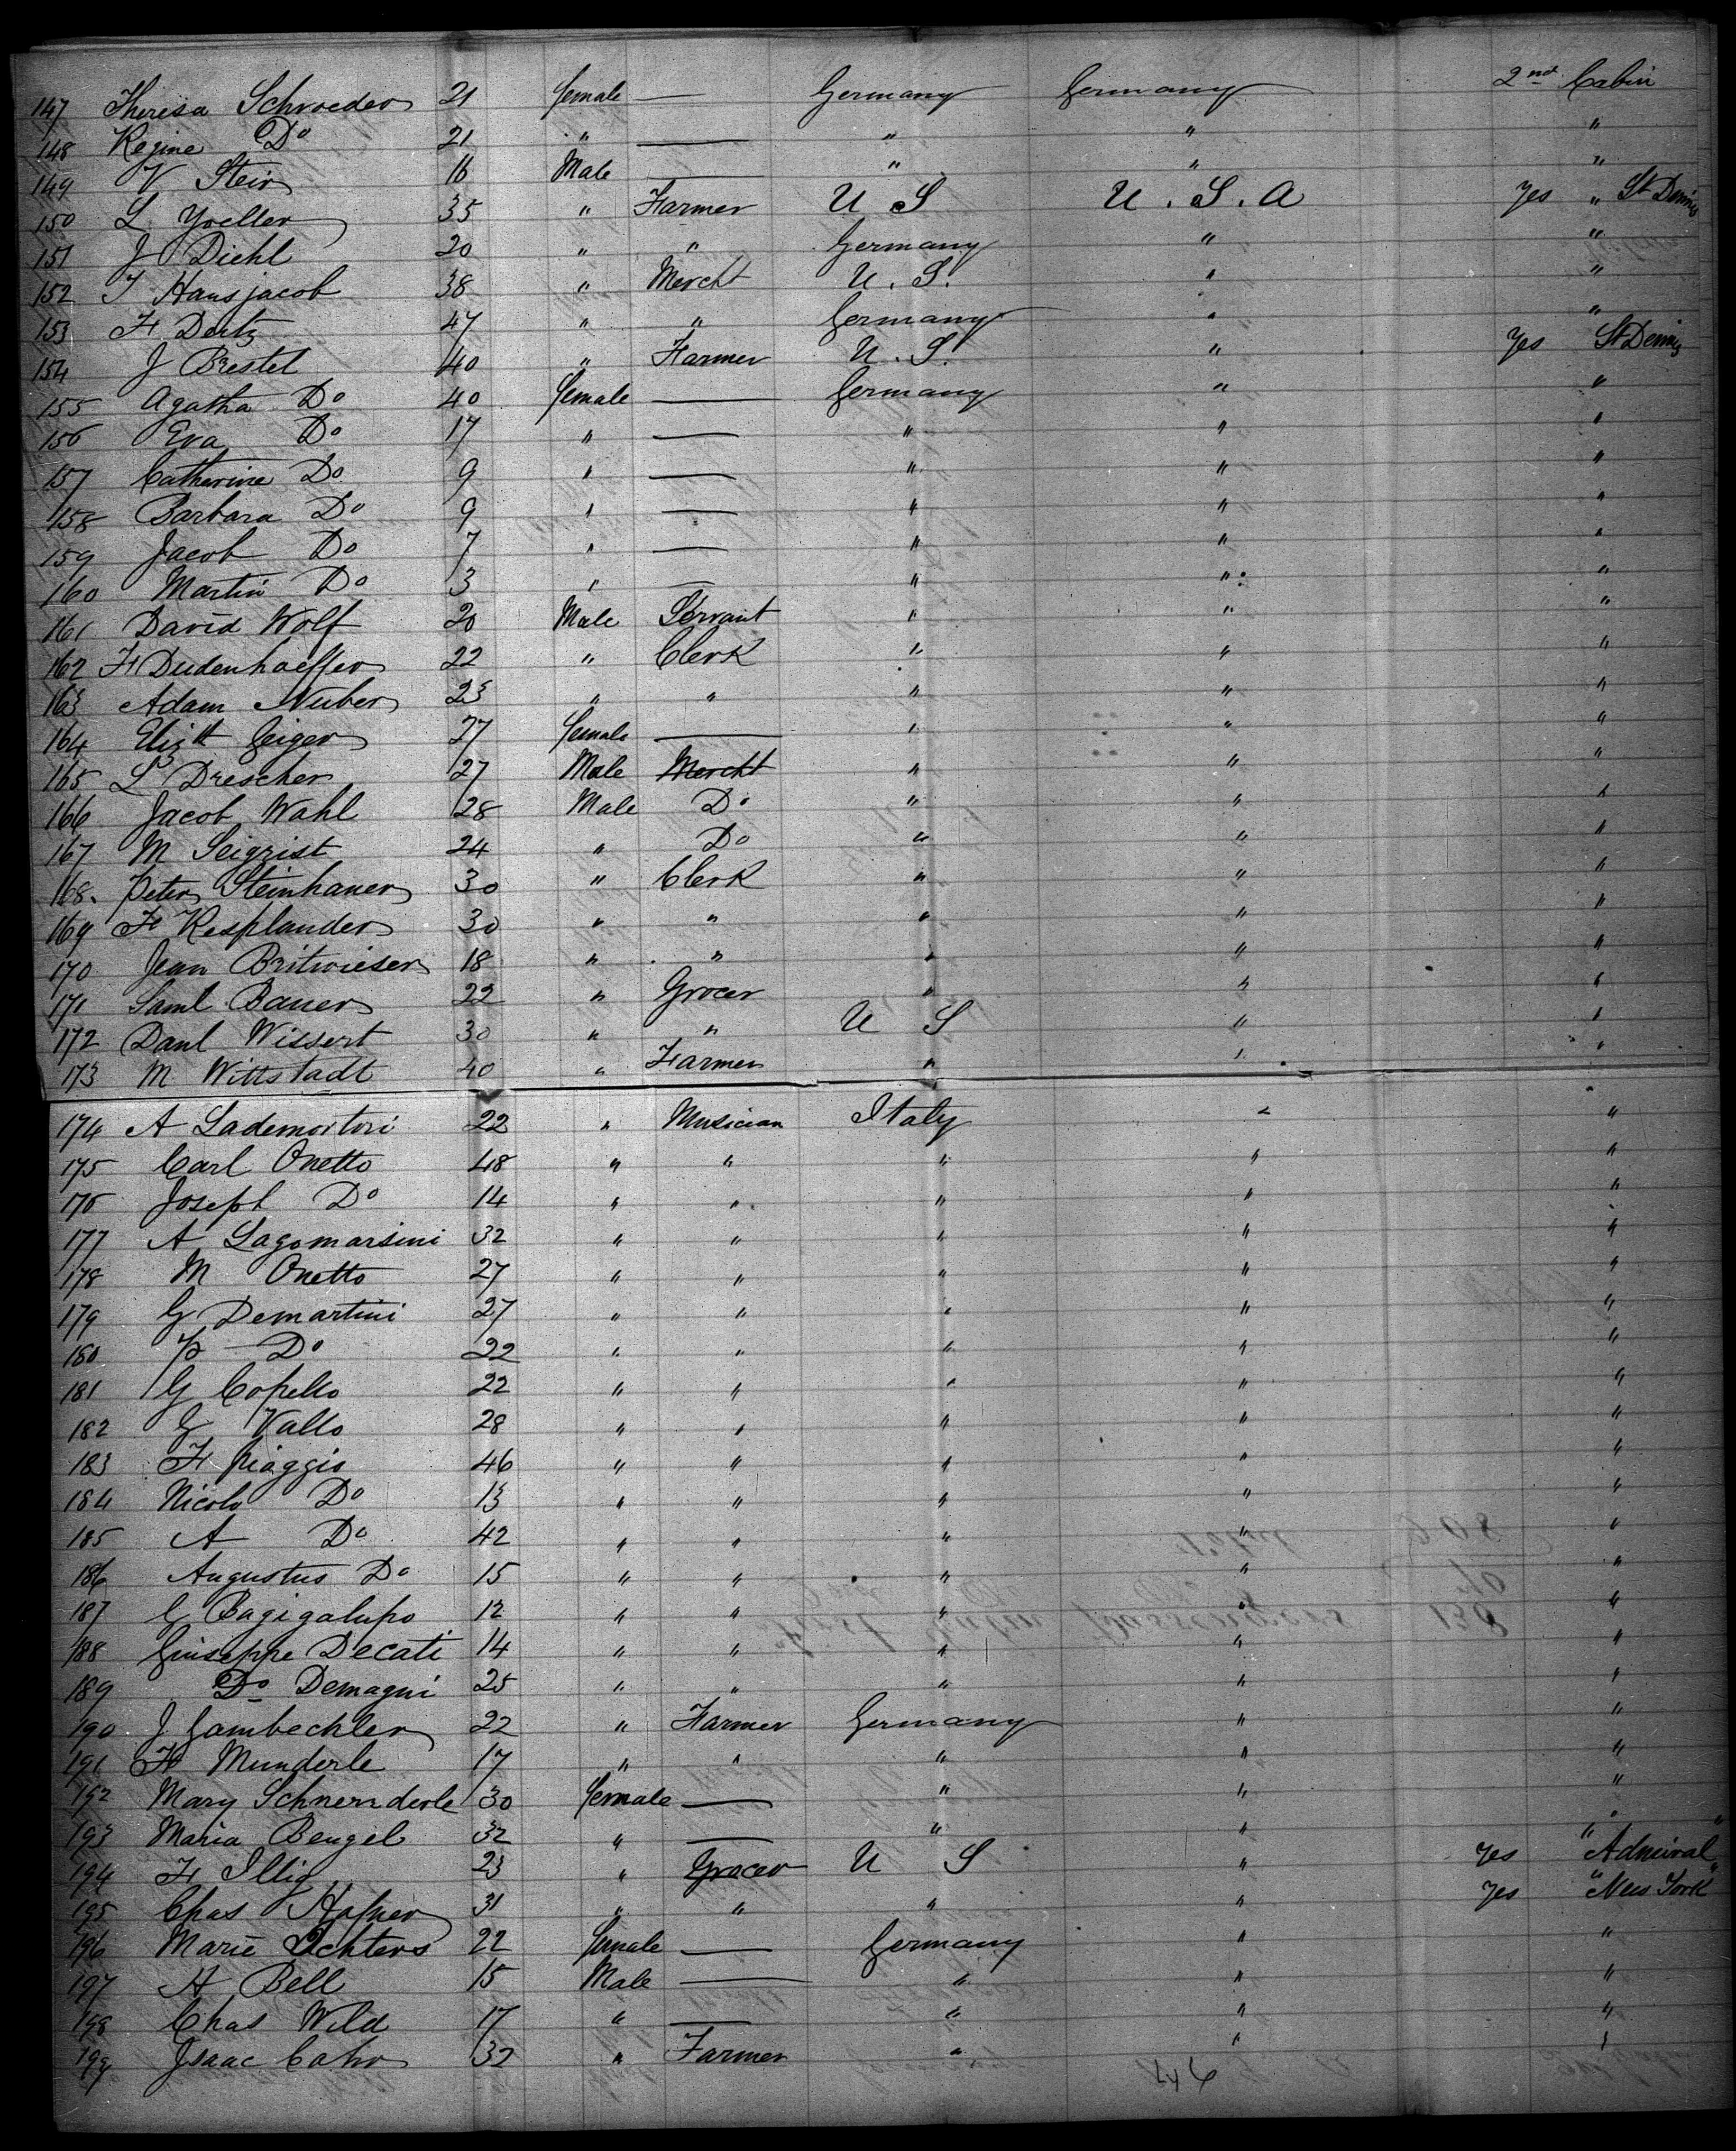 147 Theresa Schroeder 21 female — Germany Germany 2nd Cabin
148 Regine Do 21 " — " " "
149 V Stein 16 Male — " " "
150 L Yoeller 35 " Farmer U S U. S. A Yes " St Dennis
151 J Diehl 20 " " Germany " "
152 J Hansjacob 38 " Mercht U. S. " "
153 H Dertz 47 " " Germany " "
154 J Brestel 40 " Farmer U. S. " Yes St Dennis
155 Agatha Do 40 female — Germany " "
156 Eva Do 17 " — " " "
157 Catherine Do 9 " — " " "
158 Barbara Do 9 " — " " "
159 Jacob Do 7 " — " " "
160 Martin Do 3 " — " " "
161 David Wolf 20 Male Servant " " "
162 H Dudenhoeffer 22 " Clerk " " "
163 Adam Nuber 23 " " " " "
164 Elizth Geiger 27 female — " " "
165 L Drescher 27 Male Mercht " " "
166 Jacob Wahl 28 Male Do " " "
167 M Seigrist 24 " Do " " "
168. Peter Steinhauer 30 " Clerk " " "
169 H Kesplander 30 " " " " "
170 Jean Britwieser 18 " " " " "
171 Saml Bauer 22 " Grocer " " "
172 Danl Wissert 30 " " U S " "
173 M Wittstadt 40 " Farmer " " "
174 A Lademortori 22 " Musician Italy " "
175 Carl Onetto 48 " " " " "
176 Joseph Do 14 " " " " "
177 A Lagomarsini 32 " " " " "
178 M Onetto 27 " " " " "
179 G Demartini 27 " " " " "
180 P Do 22 " " " " "
181 G Copello 22 " " " " "
182 G Vallo 28 " " " " "
183 H Piaggio 46 " " " " "
184 Nicolo Do 13 " " " " "
185 A Do 42 " " " " "
186 Augustus Do 15 " " " " "
187 G Bagigalupo 12 " " " " "
188 Giuseppe Decati 14 " " " " "
189 Do Demagni 25 " " " " "
190 J Gambechler 22 " Farmer Germany " "
191 H Munderle 17 " " " " "
192 Mary Schnernderle 30 female — " " "
193 Maria Bengel 32 " — " " "
194 H Illig 23 " Grocer U S " Yes "Admiral"
195 Chas Hafner 31 " " " " Yes "New York"
196 Marie Ochters 22 female — Germany " "
197 A Bell 15 Male — " " "
198 Chas Wild 17 " — " " "
199 Isaac Cahn 32 " Farmer " " "